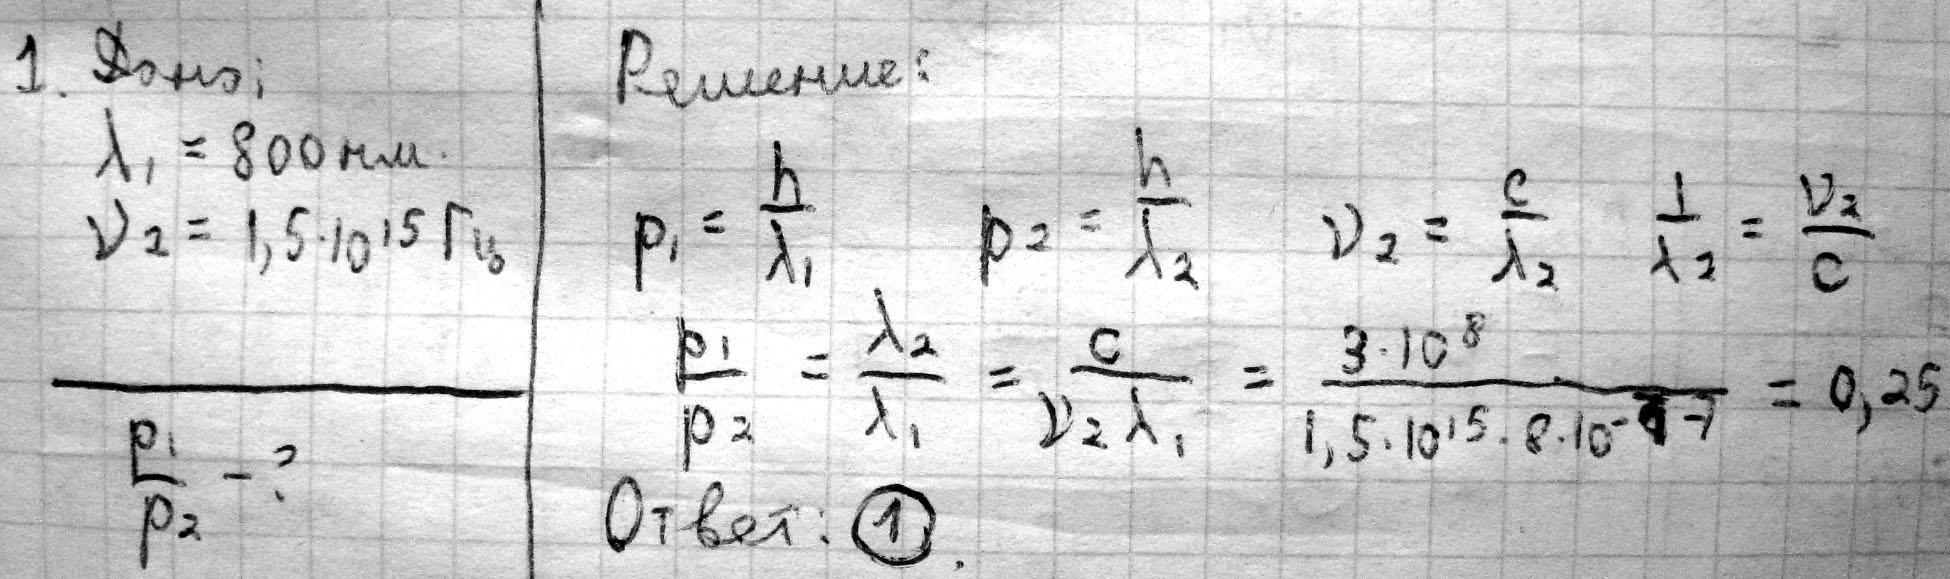 1. Дано:
λ₁ = 800 нм.
ν₂ = 1,5·10¹⁵ Гц
p₁/p₂ - ?
Решение:
p₁ = h/λ₁ p₂ = h/λ₂ ν₂ = c/λ₂ 1/λ₂ = ν₂/c
p₁/p₂ = λ₂/λ₁ = c/(ν₂ λ₁) = 3·10⁸/(1,5·10¹⁵·8·10⁻⁷) = 0,25
Ответ: 1.